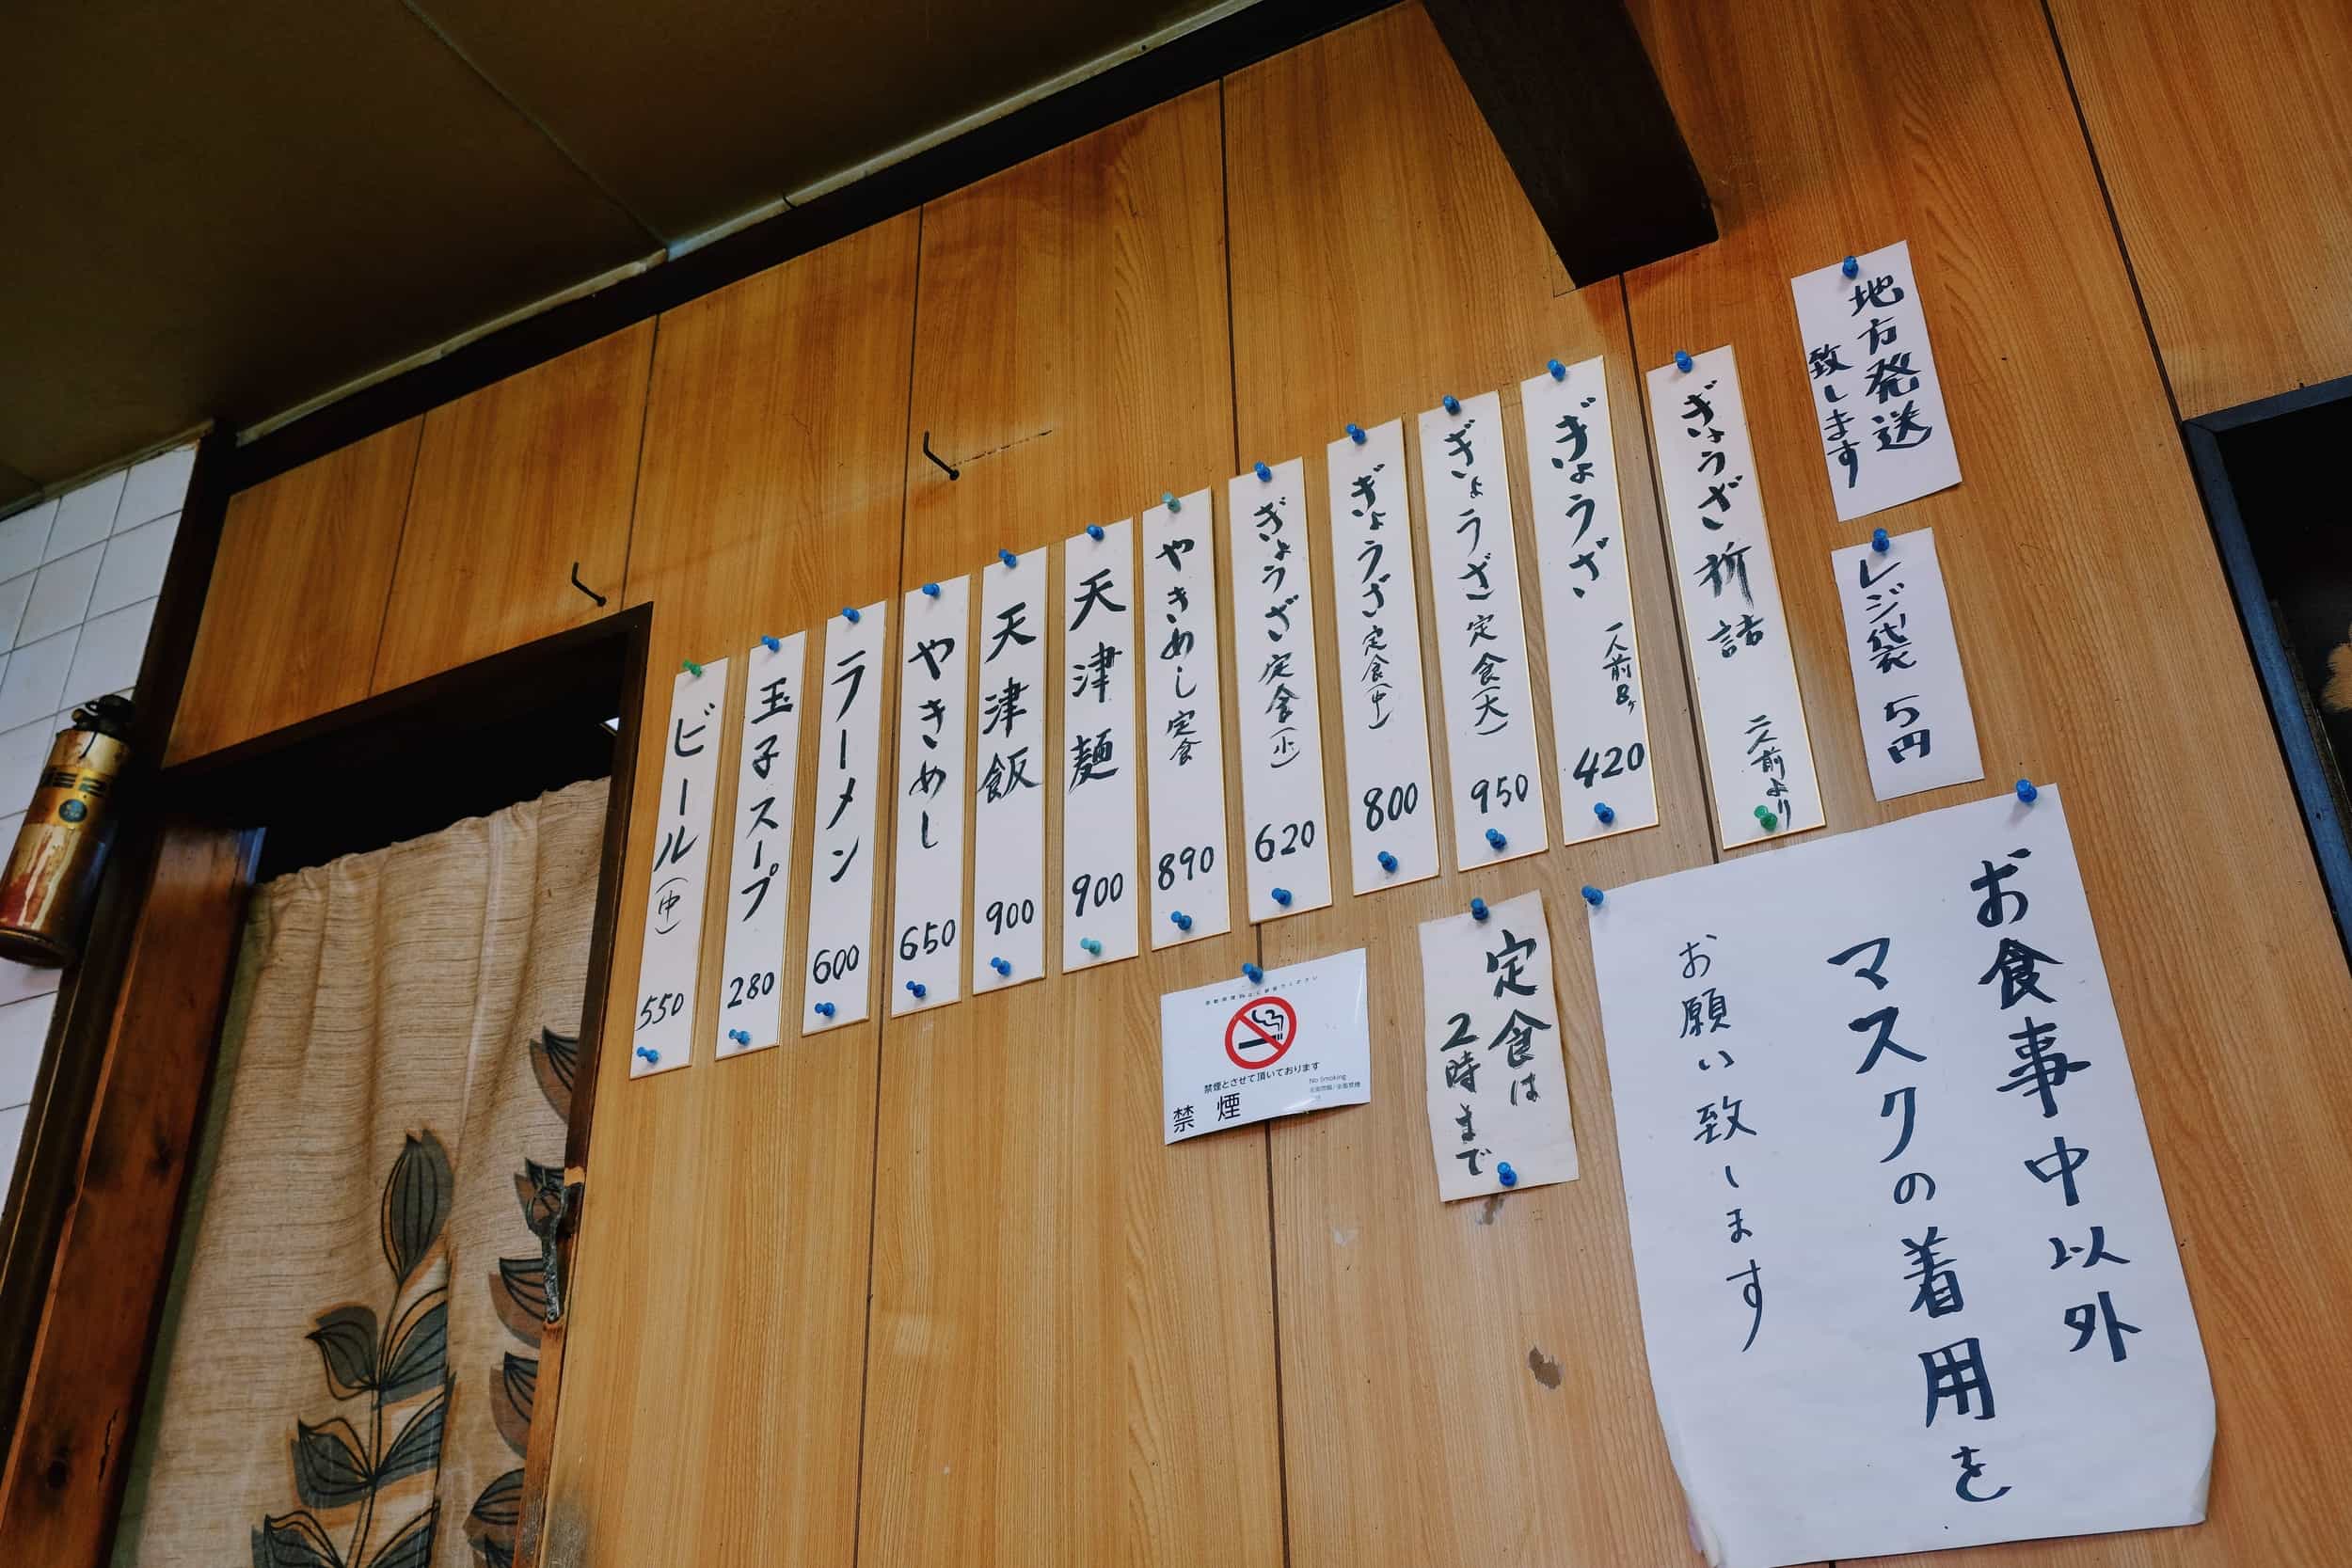 地方発送
致します
レジ袋 5円
ぎょうざ折詰 二人前より
ぎょうざ 一人前8ヶ 420
ぎょうざ定食(大) 950
ぎょうざ定食(中) 800
ぎょうざ定食(小) 620
やきめし定食 890
天津麺 900
天津飯 900
やきめし 650
ラーメン 600
玉子スープ 280
ビール(中) 550
お食事中以外
マスクの着用を
お願い致します
定食は
2時まで
禁煙とさせて頂いております
No Smoking
禁煙